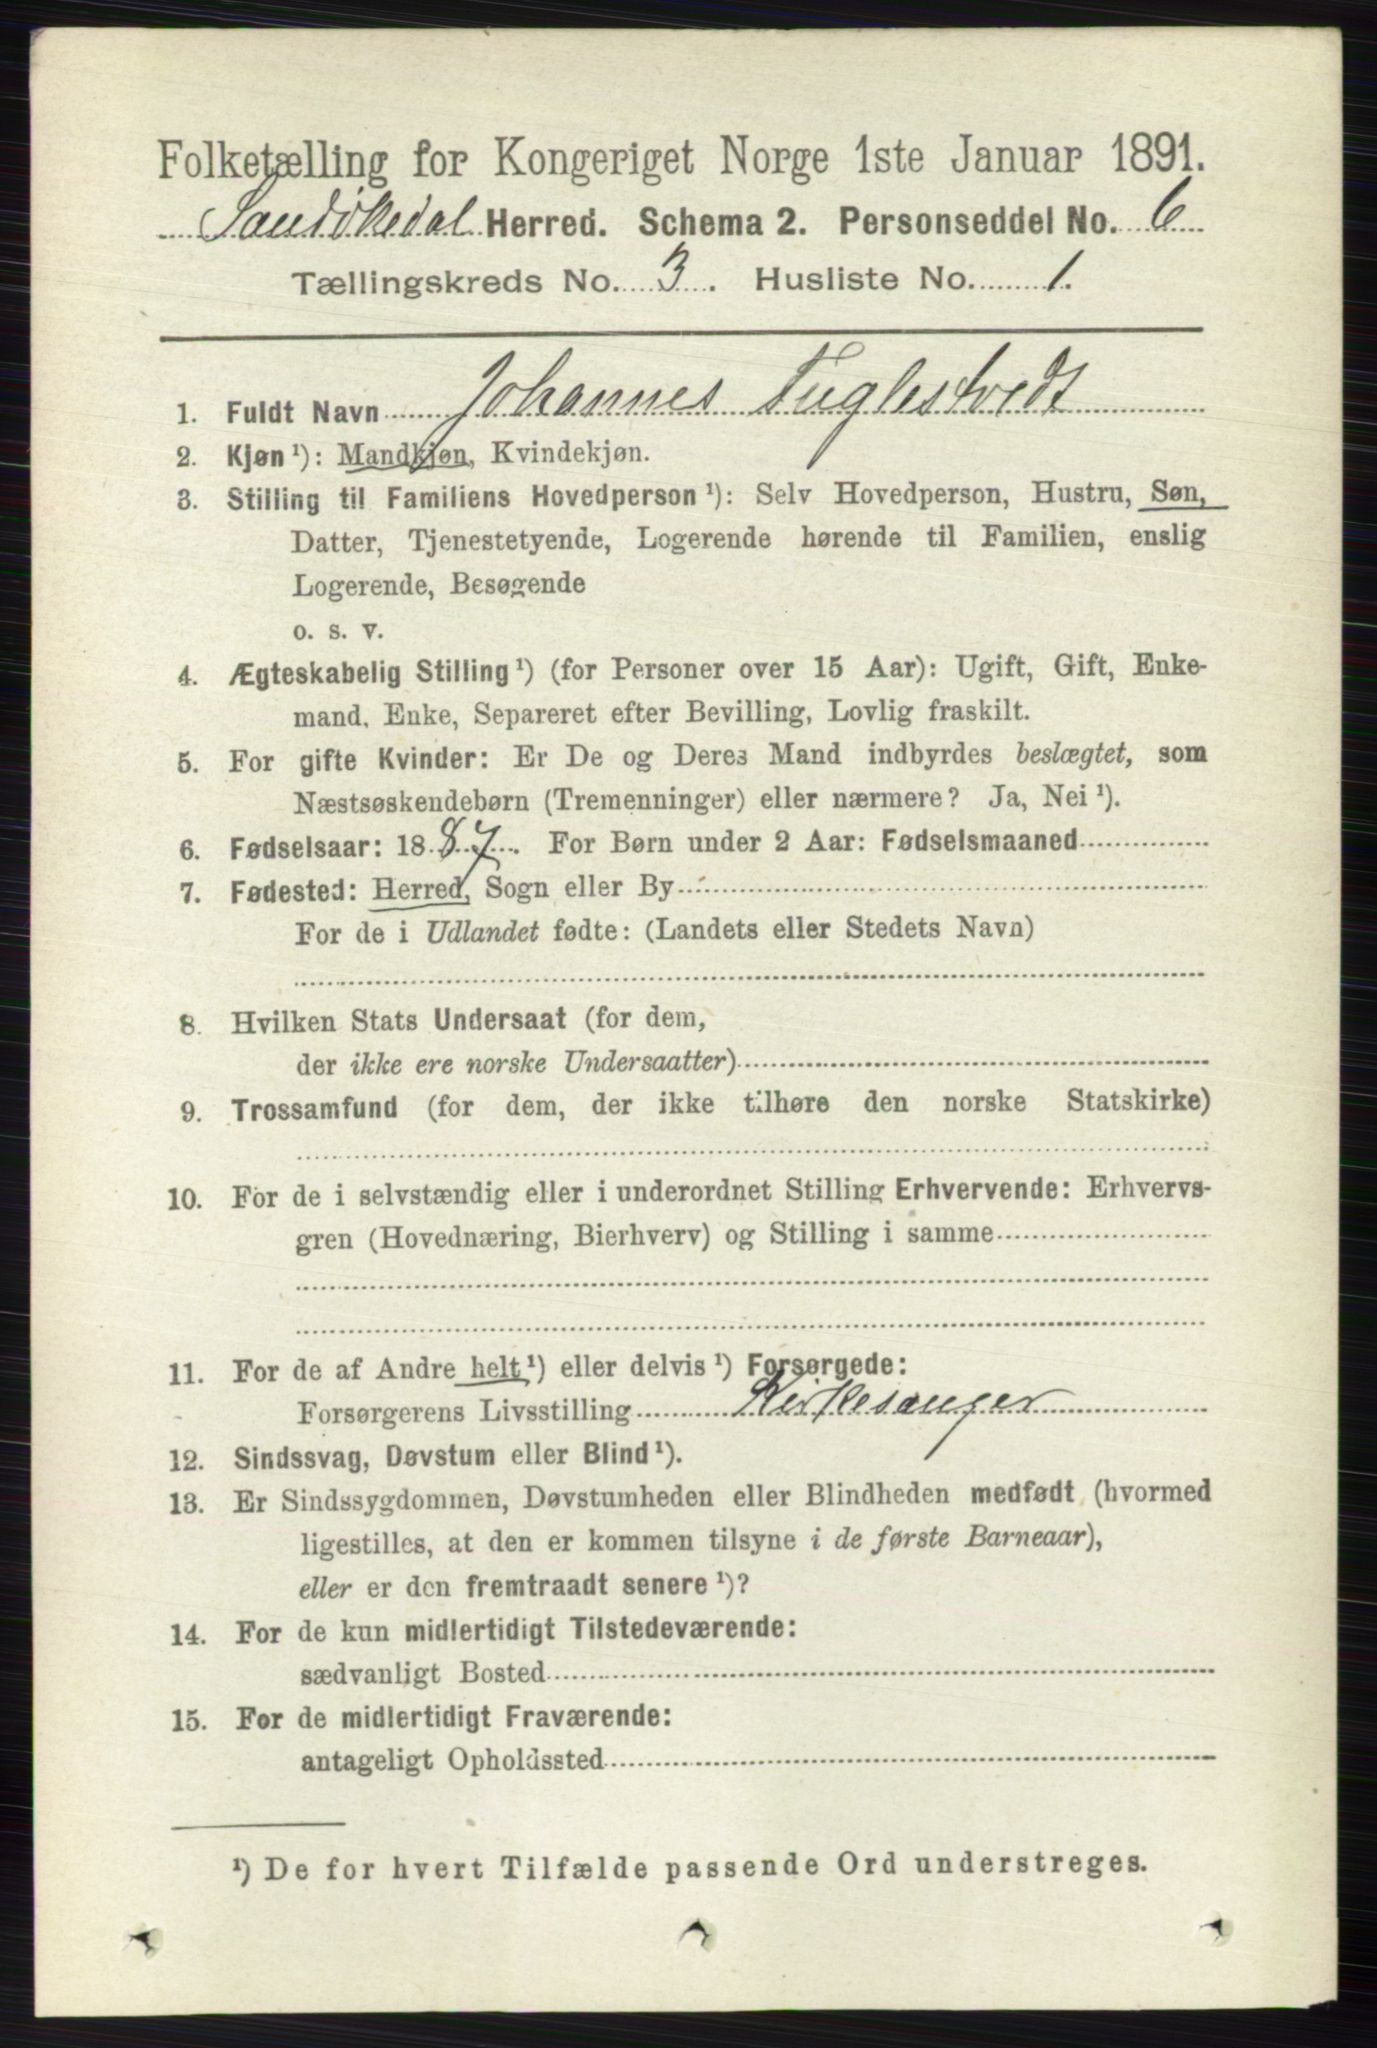 Folketælling for Kongeriget Norge 1ste Januar 1891.
Sandøkedal Herred. Schema 2. Personseddel No. 6
Tællingskreds No. 3. Husliste No. 1.
1. Fuldt Navn Johannes Fuglestvedt
2. Kjøn¹): Mandkjøn, Kvindekjøn.
3. Stilling til Familiens Hovedperson¹): Selv Hovedperson, Hustru, Søn,
Datter, Tjenestetyende, Logerende hørende til Familien, enslig
Logerende, Besøgende
o. s. v.
4. Ægteskabelig Stilling¹) (for Personer over 15 Aar): Ugift, Gift, Enke-
mand, Enke, Separeret efter Bevilling, Lovlig fraskilt.
5. For gifte Kvinder: Er De og Deres Mand indbyrdes beslægtet, som
Næstsøskendebørn (Tremenninger) eller nærmere? Ja, Nei¹).
6. Fødselsaar: 1887. For Børn under 2 Aar: Fødselsmaaned
7. Fødested: Herred, Sogn eller By
For de i Udlandet fødte: (Landets eller Stedets Navn)
8. Hvilken Stats Undersaat (for dem,
der ikke ere norske Undersaatter)
9. Trossamfund (for dem, der ikke tilhøre den norske Statskirke)
10. For de i selvstændig eller i underordnet Stilling Erhvervende: Erhvervs-
gren (Hovednæring, Bierhverv) og Stilling i samme
11. For de af Andre helt¹) eller delvis¹) Forsørgede:
Forsørgerens Livsstilling Kirkesanger
12. Sindssvag, Døvstum eller Blind¹).
13. Er Sindssygdommen, Døvstumheden eller Blindheden medfødt (hvormed
ligestilles, at den er kommen tilsyne i de første Barneaar),
eller er den fremtraadt senere¹)?
14. For de kun midlertidigt Tilstedeværende:
sædvanligt Bosted
15. For de midlertidigt Fraværende:
antageligt Opholdssted
¹) De for hvert Tilfælde passende Ord understreges.